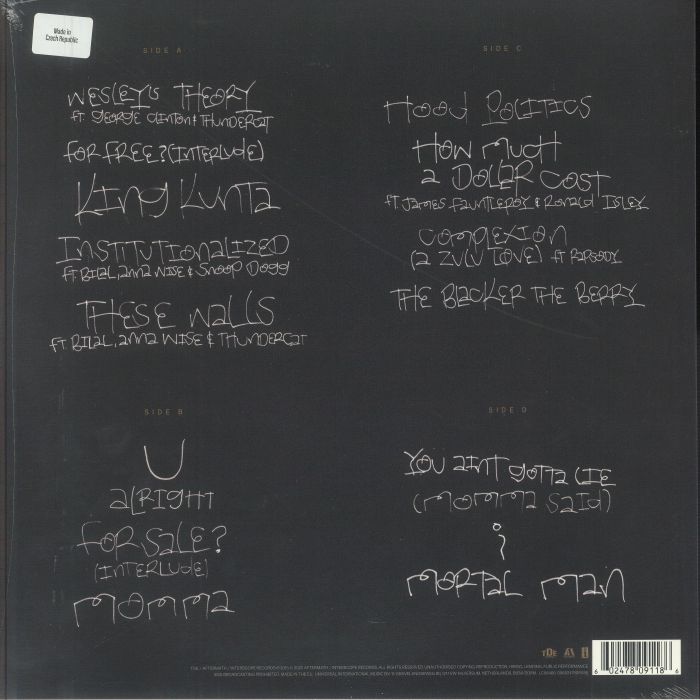 Made in
Czech Republic
SIDE A
WESLEY'S THEORY
ft. GEORGE CLINTON & THUNDERCAT
FOR FREE? (INTERLUDE)
KING KUNTA
INSTITUTIONALIZED
ft. BILAL, ANNA WISE & SNOOP DOGG
THESE WALLS
ft. BILAL, ANNA WISE & THUNDERCAT
SIDE B
U
ALRIGHT
FOR SALE?
(INTERLUDE)
MOMMA
SIDE C
HOOD POLITICS
HOW MUCH
A DOLLAR COST
ft. JAMES FAUNTLEROY & RONALD ISLEY
COMPLEXION
(A ZULU LOVE) ft RAPSODY
THE BLACKER THE BERRY
SIDE D
YOU AINT GOTTA LIE
(MOMMA SAID)
i
MORTAL MAN
TDE
6 02478 09118 6